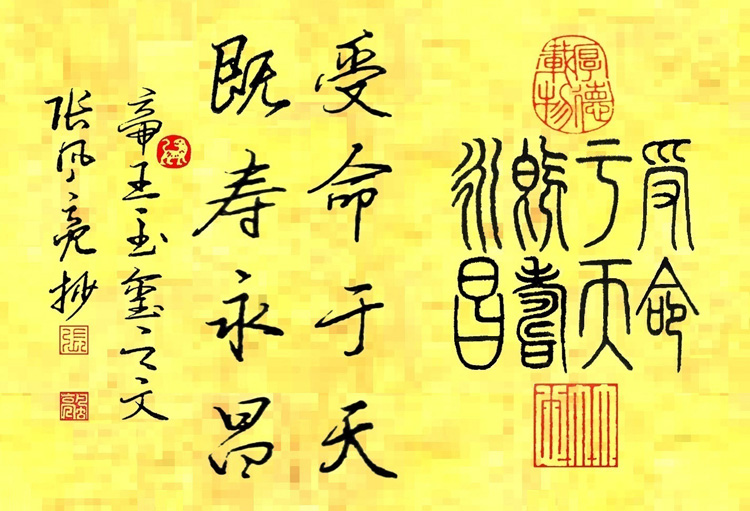 厚德載物
受命
于天
既壽
永昌
受命于天
既寿永昌
帝王玉玺之文
张风亮抄
張